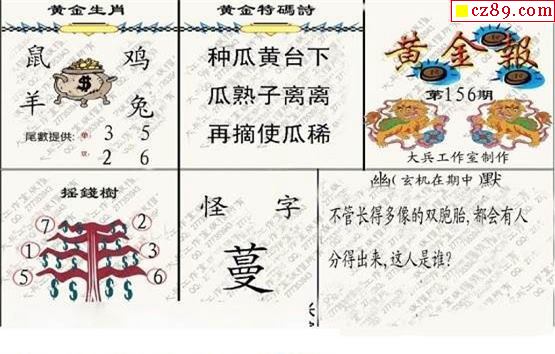 cz89.com
黄金生肖
鼠 鸡
$
羊 兔
尾數提供: 单 3 5
双 2 6
黄金特碼詩
种瓜黄台下
瓜熟子离离
再摘使瓜稀
黄金報
第156期
大兵工作室制作
摇錢樹
7 2
1 3
5 6
$ $ $ $ $ $ $ $
怪 字
蔓
幽(玄机在期中)默
不管长得多像的双胞胎,都会有人
分得出来,这人是谁?